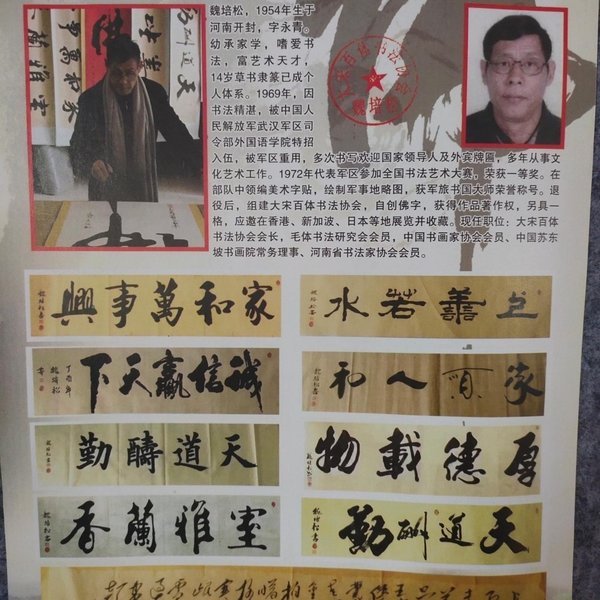 魏培松，1954年生于
河南开封，字永青。
幼承家学，嗜爱书
法，富艺术天才，
14岁草书隶篆已成个
人体系。1969年，因
书法精湛，被中国人
民解放军武汉军区司
令部外国语学院特招
入伍，被军区重用，多次书写欢迎国家领导人及外宾牌匾，多年从事文
化艺术工作。1972年代表军区参加全国书法艺术大赛，荣获一等奖。在
部队中领编美术字贴，绘制军事地略图，获军旅书国大师荣誉称号。退
役后，组建大宋百体书法协会，自创佛字，获得作品著作权，另具一
格，应邀在香港、新加坡、日本等地展览并收藏。现任职位：大宋百体
书法协会会长，毛体书法研究会会员，中国书画家协会会员、中国苏东
坡书画院常务理事、河南省书法家协会会员。
家和萬事興
上善若水
誠信贏天下
丁酉年
魏培松書
家順人和
天道酬勤
厚德載物
室雅蘭香
天道酬勤